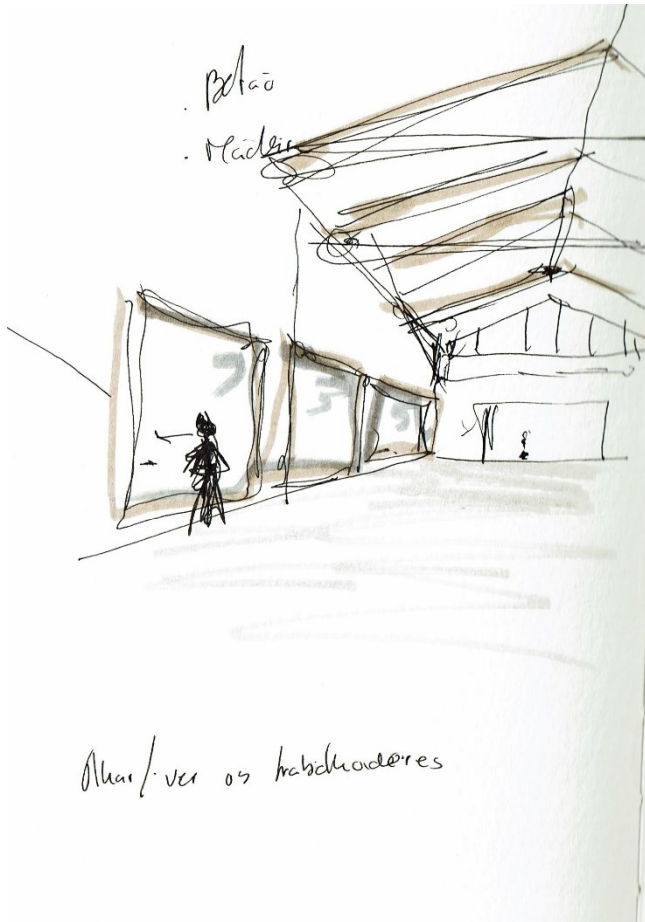 . Betão
. Madeira
Olhar/ver os trabalhadores